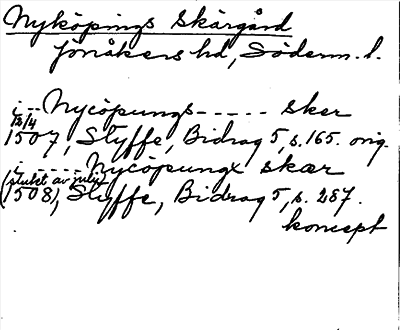 Nyköpings Skärgård
Jönåkers hd, Söderm. l.
i -- Nycöpungs ----- sker
13/4
1507, Styffe, Bidrag 5, s. 165. orig.
i ----- Nycöpungx skær
(slutet av juli)
(1508), Styffe, Bidrag 5, s. 287.
koncept